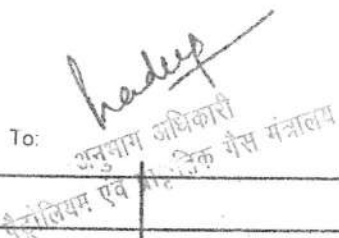 To:
अनुभाग अधिकारी
पैट्रोलियम एवं प्राकृतिक गैस मंत्रालय